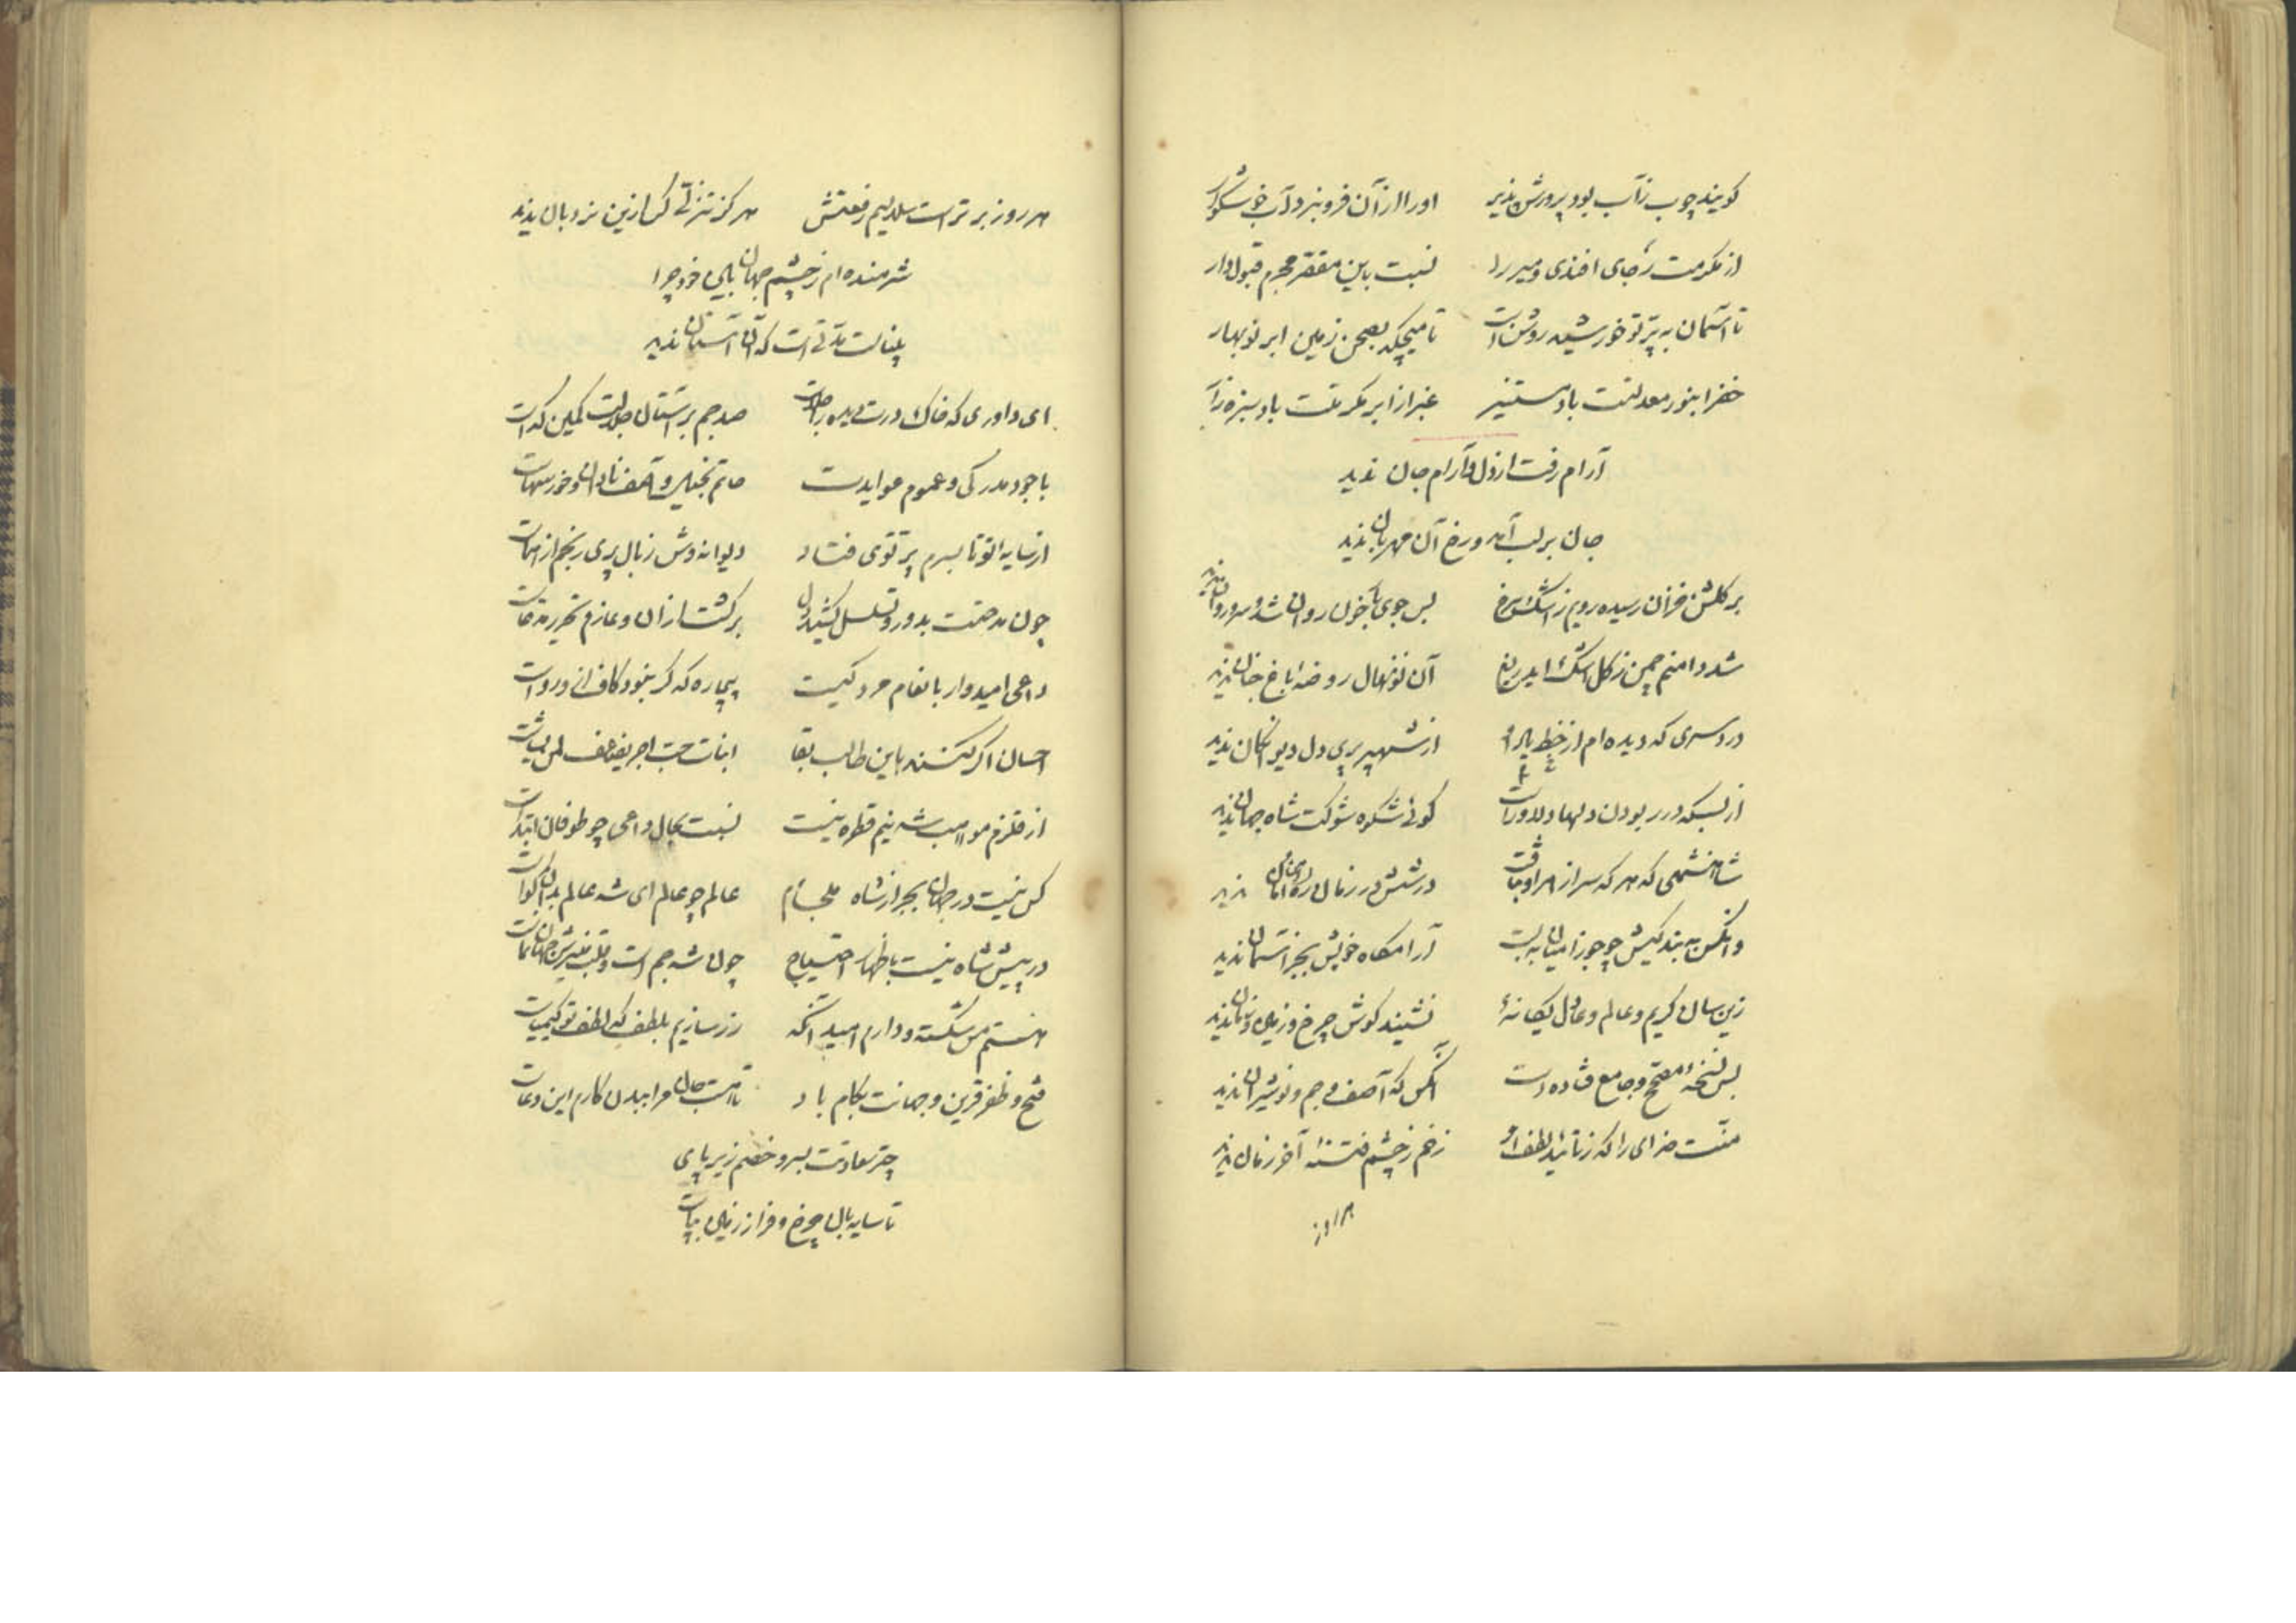 کویند چوب زآب بود پرورش پذیر اورا ازآن فرو نبرد آب خوشکوار
از مکرمت رجای افندی و میر را نسبت باین مفقر مجرم قبول دار
تا آسمان به پرتو خورشید روشن است تا میچکد بصحن زمین ابر نوبهار
خضرا بنور معدلتت باد مستنیر غبرا از ابر مکرمتت باد سبزه زار
آرام رفت از دل و آرام جان ندید
جان بر لب آمد و رخ آن مهربان ندید
بر کلشن خزان رسیده رویم ز اشک سرخ بس جوی خون روان شد و سرو روان ندید
شد دامنم چمن ز کل اشک ای دریغ آن نونهال روضهٔ باغ جنان ندید
دردسری که دیده ام از خط یار از شهپر پری دل دیوانکان ندید
از بسکه در ربودن دلها دلاورست کوئی شکوه شوکت شاه جهان ندید
شاهنشهی که هر که سر از امر او بتافت در شش در زمان ره امان ندید
وانکس به بندکیش چو جوزا میان به بست آرامکاه خویش بجز آسمان ندید
زین سان کریم و عالم و عادل یکانهٔ نشنید کوش چرخ و زمین و زمان ندید
بس نسخهٔ مصحح و جامع فتاده است آنکس که آصف و جم و نوشیروان ندید
منت خدای را که ز تأیید لطف او زخم ز چشم فتنهٔ آخر زمان ندید
هر روز
هر روز برتر است سلالیم رفعتش هرکز تنزلی کس ازین نردبان ندید
شرمنده ام ز چشم جهان بین خود چرا
مدتی است که آن آستان ندید
ای داوری که خاک درت دیده را جلاست صد جم بر آستان جلالت کمین کداست
با جود مدرکی و عموم عوایدت حاتم بخیل و آصف نادان و خور سهاست
از سایهٔ تو تا بسرم پرتوی فتاد دیوانه وش ز بال پری رنجم از هماست
چون مدحتت بدور و تسلسل کشید دل برکشت ازان و عازم تحریر مدعاست
داعی امیدوار بانعام مردکیست بیچاره که کر بنود کافرانی رواست
احسان اکر کنند باین طالب بقا
از قلزم مواهب شه نیم قطره نیست نسبت بحال داعی چو طوفان ابتداست
کس نیست در جهان بجز از شاه ملجأم عالم چو عالم ای شه عالم بدان کواست
در پیش شاه نیست باظهار احتیاج چون شه جم است و قلب منیرش جهان نماست
هستم مس شکسته و دارم امید آنکه زر سازیم بلطف که لطف تو کیمیاست
فتح و ظفر قرین و جهانت بکام باد تا هست جان مرا ببدن کارم این دعاست
چتر سعادتت بسر و خصم زیر پای
تا سایه بان چرخ و فراز زمین بپاست